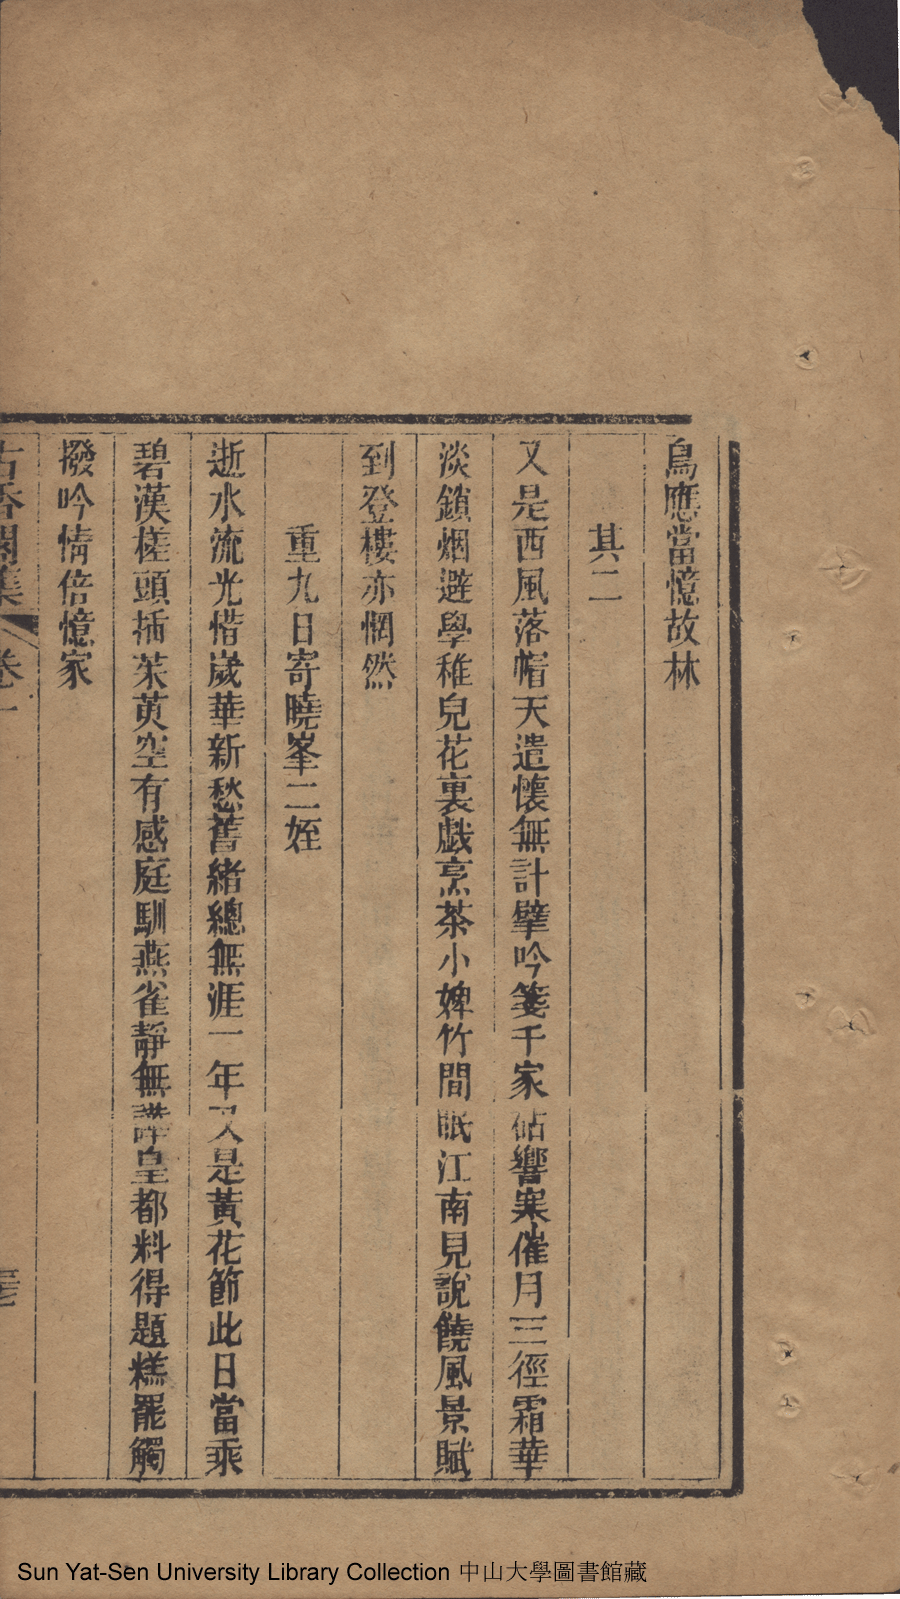 鳥應當憶故林
其二
又是西風落帽天遣懷無計擘吟箋千家砧響寒催月三徑霜華
淡鎖烟避學稚兒花裏戲烹茶小婢竹間眠江南見說饒風景賦
到登樓亦惘然
重九日寄曉峯二姪
逝水流光惜歲華新愁舊緒總無涯一年又是黃花節此日當乘
碧漢槎頭插茱萸空有感庭馴燕雀靜無譁皇都料得題糕罷觸
撥吟情倍憶家
古香閣集 卷一
Sun Yat-Sen University Library Collection 中山大學圖書館藏